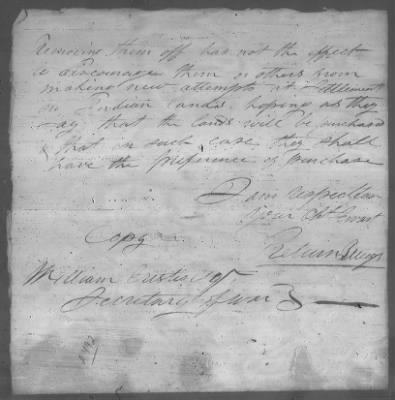 removing them off has not the effect
to discourage them or others from
making new attempts at settlement
on Indian lands, hoping as they
say that the lands will be purchased
& that in such case they shall
have the preference of purchase
I am respectfully
your Obt Servt
Copy
Return J Meigs
William Eustis Esqr
Secretary of War